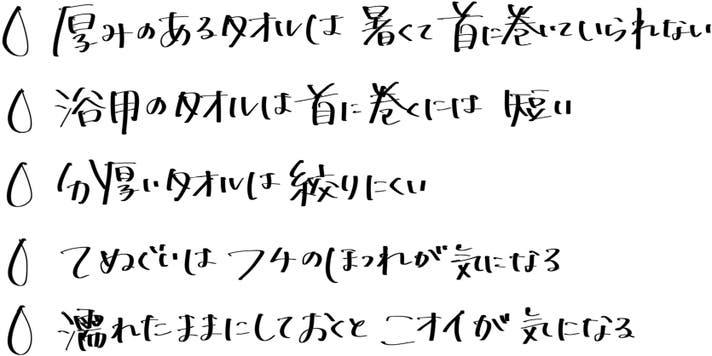 厚みのあるタオルは 暑くて首に巻いていられない
浴用のタオルは首に巻くには 短い
分厚いタオルは絞りにくい
てぬぐいは フチのほつれが気になる
濡れたままにしておくと ニオイが気になる